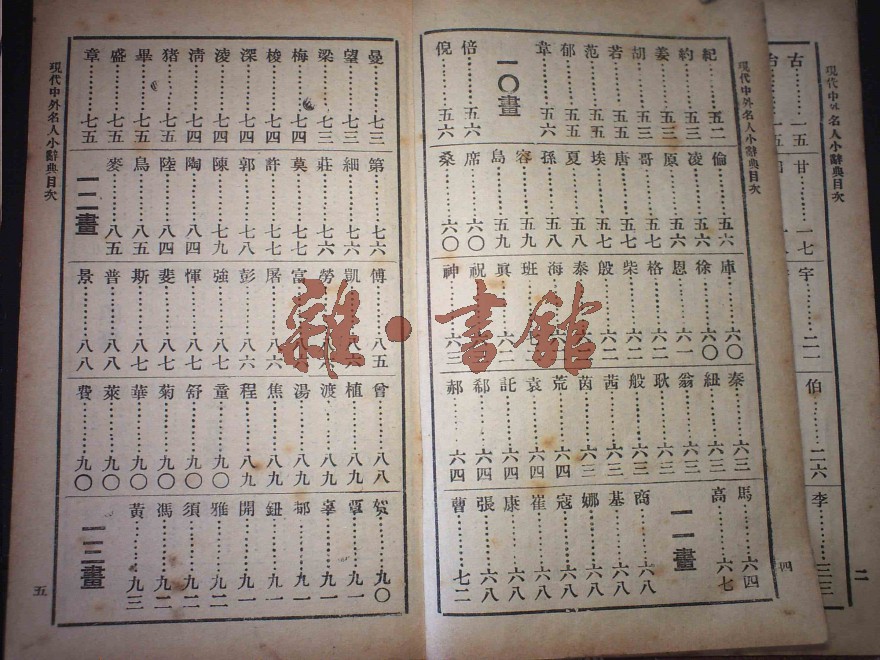 現代中外名人小辭典目次
古……一五
甘……一七
宇……二一
伯……二六
李……三三
二
現代中外名人小辭典目次
紀……五二
約……五三
姜……五三
胡……五三
若……五五
范……五五
郁……五五
韋……五六
一〇畫
倍……五六
倪……五六
倫……五六
凌……五六
原……五六
哥……五七
唐……五七
埃……五七
夏……五八
孫……五八
容……五九
島……五九
席……六〇
桑……六〇
庫……六〇
徐……六〇
恩……六一
格……六二
柴……六二
殷……六二
泰……六二
海……
班……
眞……六二
祝……
神……六三
秦……六三
紐……六三
翁……六三
耿……六三
般……六三
茜……六三
茵……六三
荒……六四
袁……六四
託……六四
郗……六四
郝……六四
馬……六四
高……六七
一一畫
商……六八
基……六八
娜……六八
寇……六八
崔……六八
康……六八
張……六八
曹……七二
四
曼……七三
望……七三
梁……七三
梅……七四
梭……七四
深……七四
淩……七四
淸……七四
猪……七五
畢……七五
盛……七五
章……七五
第……七六
細……七六
莊……七六
莫……七七
許……七七
郭……七八
陳……七九
陶……八四
陸……八四
鳥……八五
麥……八五
一二畫
傅……八五
凱……
勞……
富……
屠……八六
彭……八六
強……八七
惲……八七
斐……八七
斯……八七
普……八八
景……八八
曾……八八
植……八九
渡……八九
湯……八九
焦……八九
程……八九
童……九〇
舒……九〇
菊……九〇
華……九〇
萊……九〇
費……九〇
賀……九〇
覃……九一
辜……九一
鄒……九一
鈕……九一
開……九一
雅……九二
須……九二
馮……九二
黃……九三
一三畫
五
現代中外名人小辭典目次
雜·書館